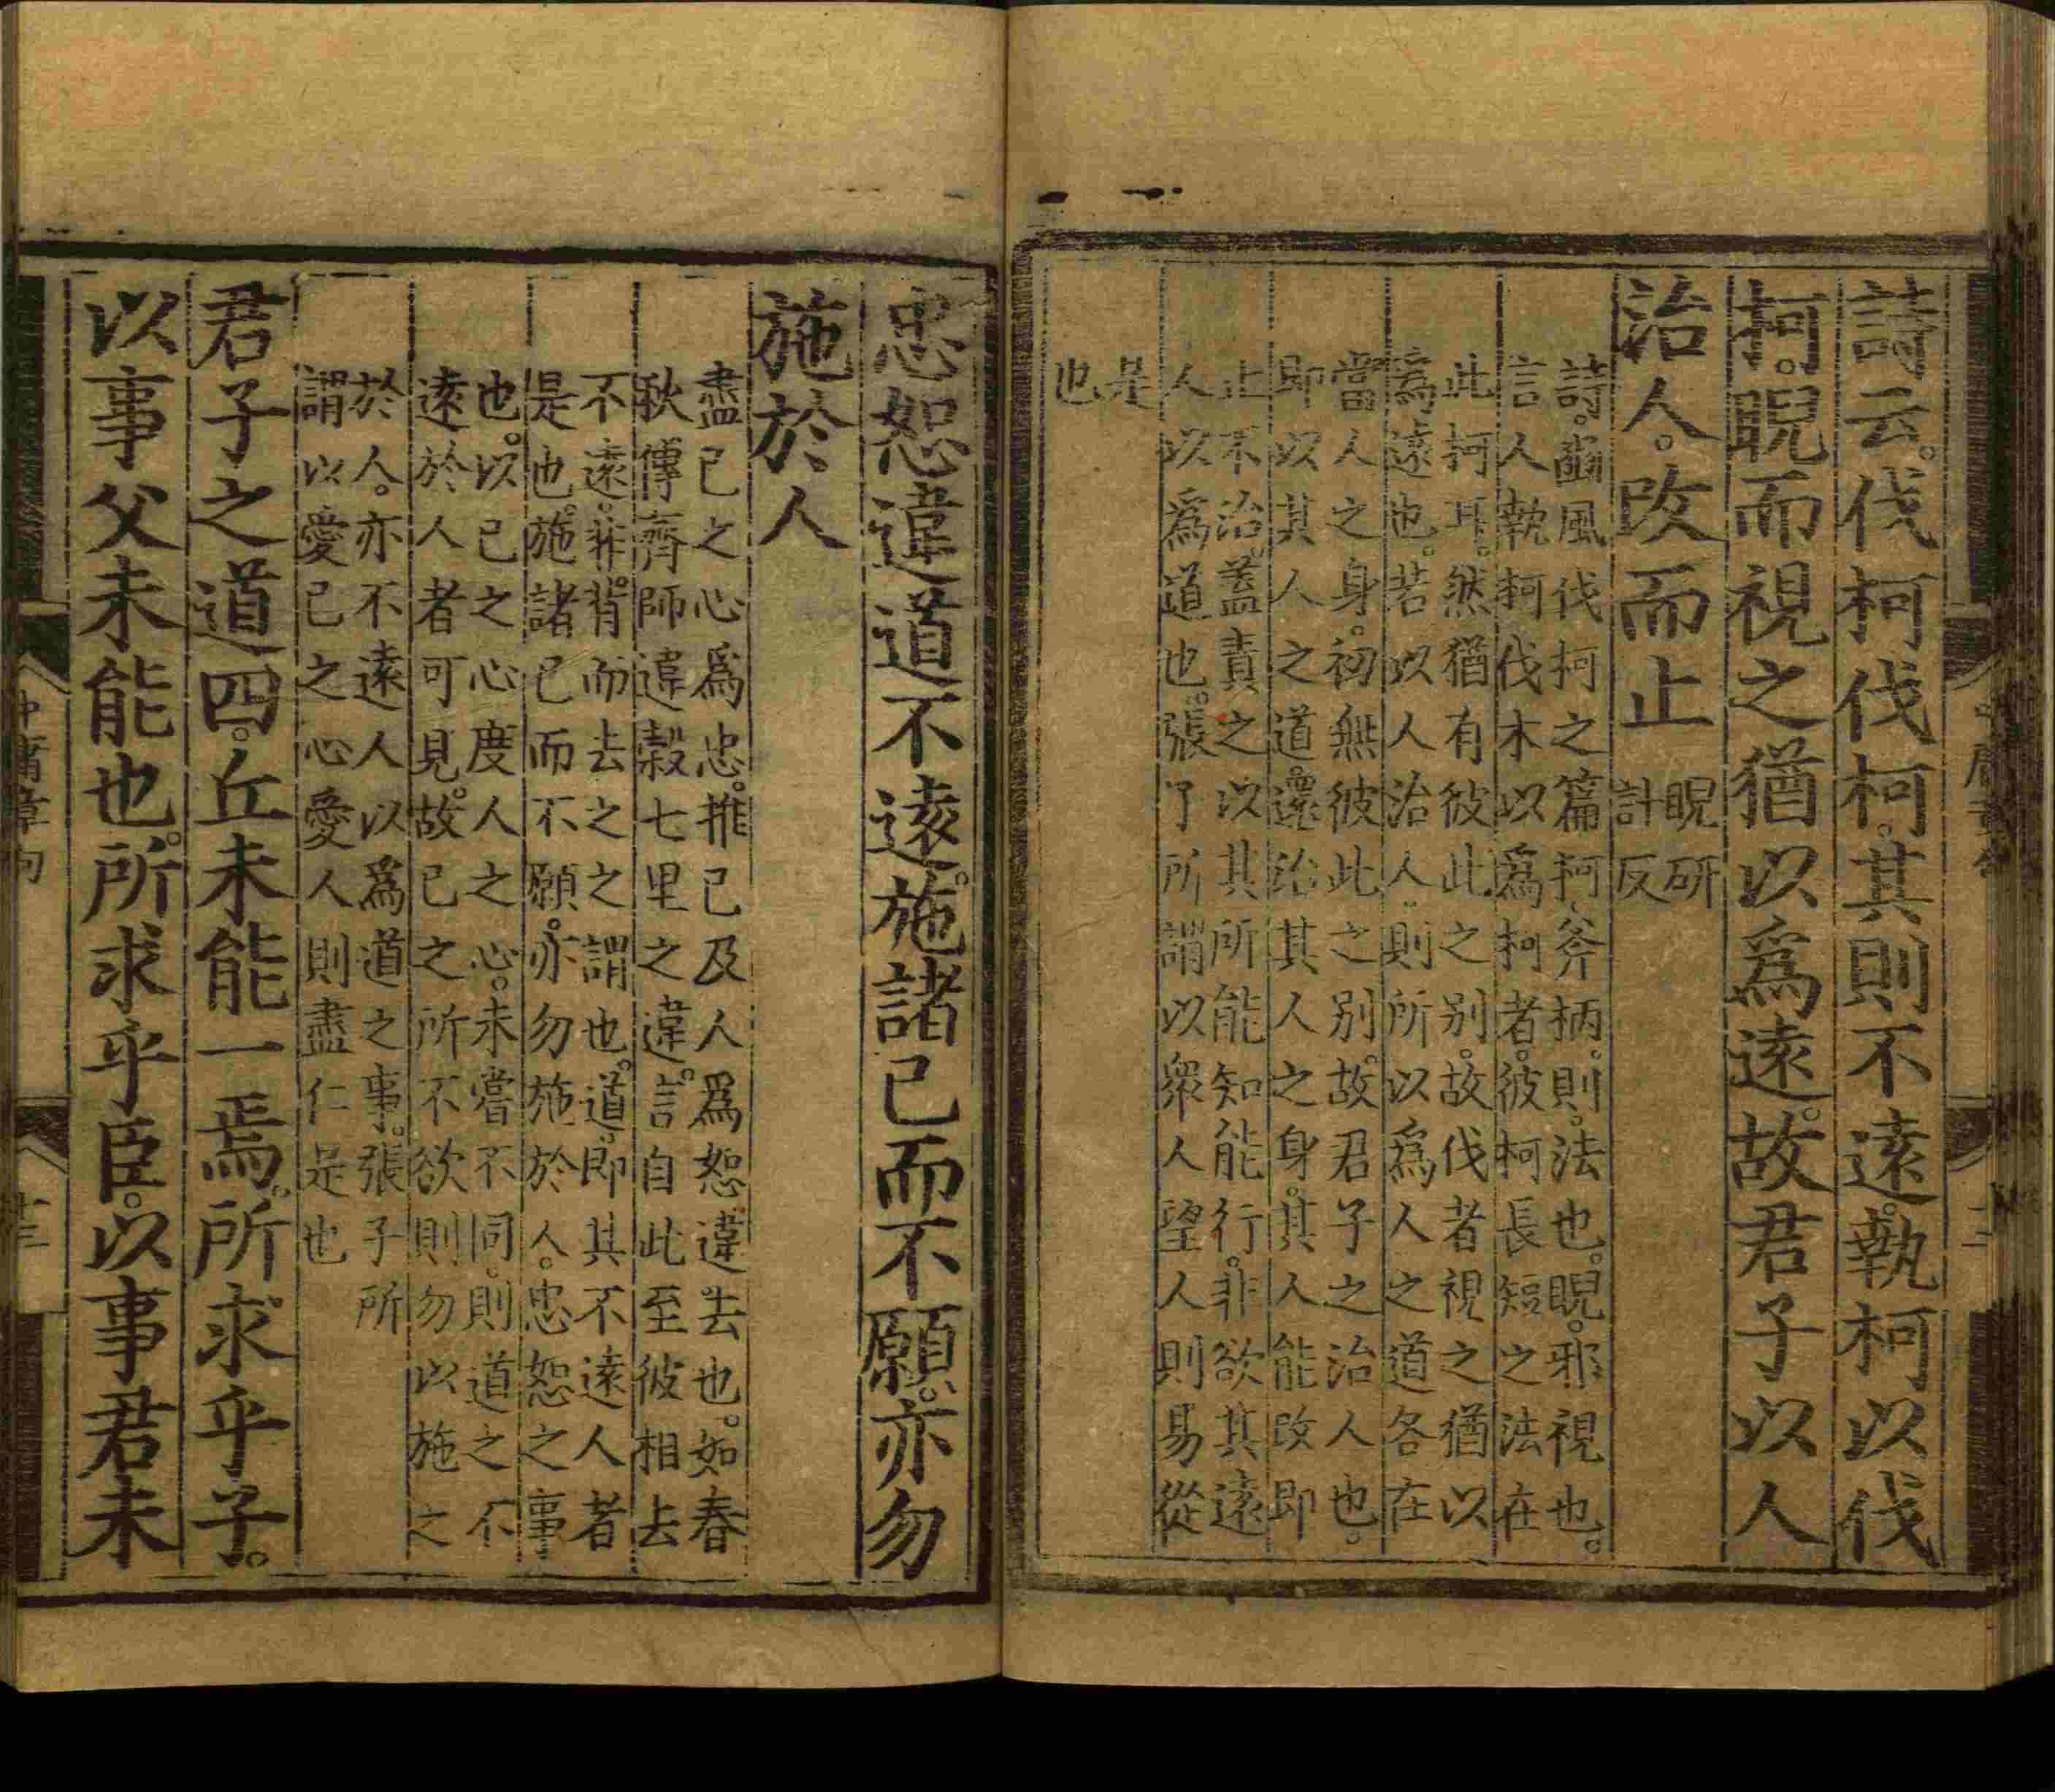 詩云。伐柯伐柯。其則不遠。執柯以伐
柯。睨而視之。猶以爲遠。故君子以人
治人。改而止
睨研
計反
詩。豳風伐柯之篇。柯、斧柄。則。法也。睨。邪視也。
言人執柯伐木以爲柯者。彼柯長短之法在
此柯耳。然猶有彼此之别。故伐者視之猶以
爲遠也。若以人治人。則所以爲人之道各在
當人之身。初無彼此之别。故君子之治人也。
即以其人之道。還治其人之身。其人能改即
止不治。蓋責之以其所能知能行。非欲其遠
人以爲道也。張子所謂以衆人望人則易從
是
也
忠恕違道不遠。施諸己而不願。亦勿
施於人
盡己之心爲忠。推己及人爲恕。違。去也。如春
秋傳齊師違榖七里之違。言自此至彼相去
不遠。非背而去之之謂也。道。即其不遠人者
是也。施諸己而不願。亦勿施於人。忠恕之事
也。以己之心度人之心。未嘗不同。則道之不
遠於人者可見。故己之所不欲則勿以施之
於人。亦不遠人以爲道之事。張子所
謂以愛己之心愛人則盡仁是也
君子之道四。丘未能一焉。所求乎子。
以事父未能也。所求乎臣。以事君未
中庸章句
十三